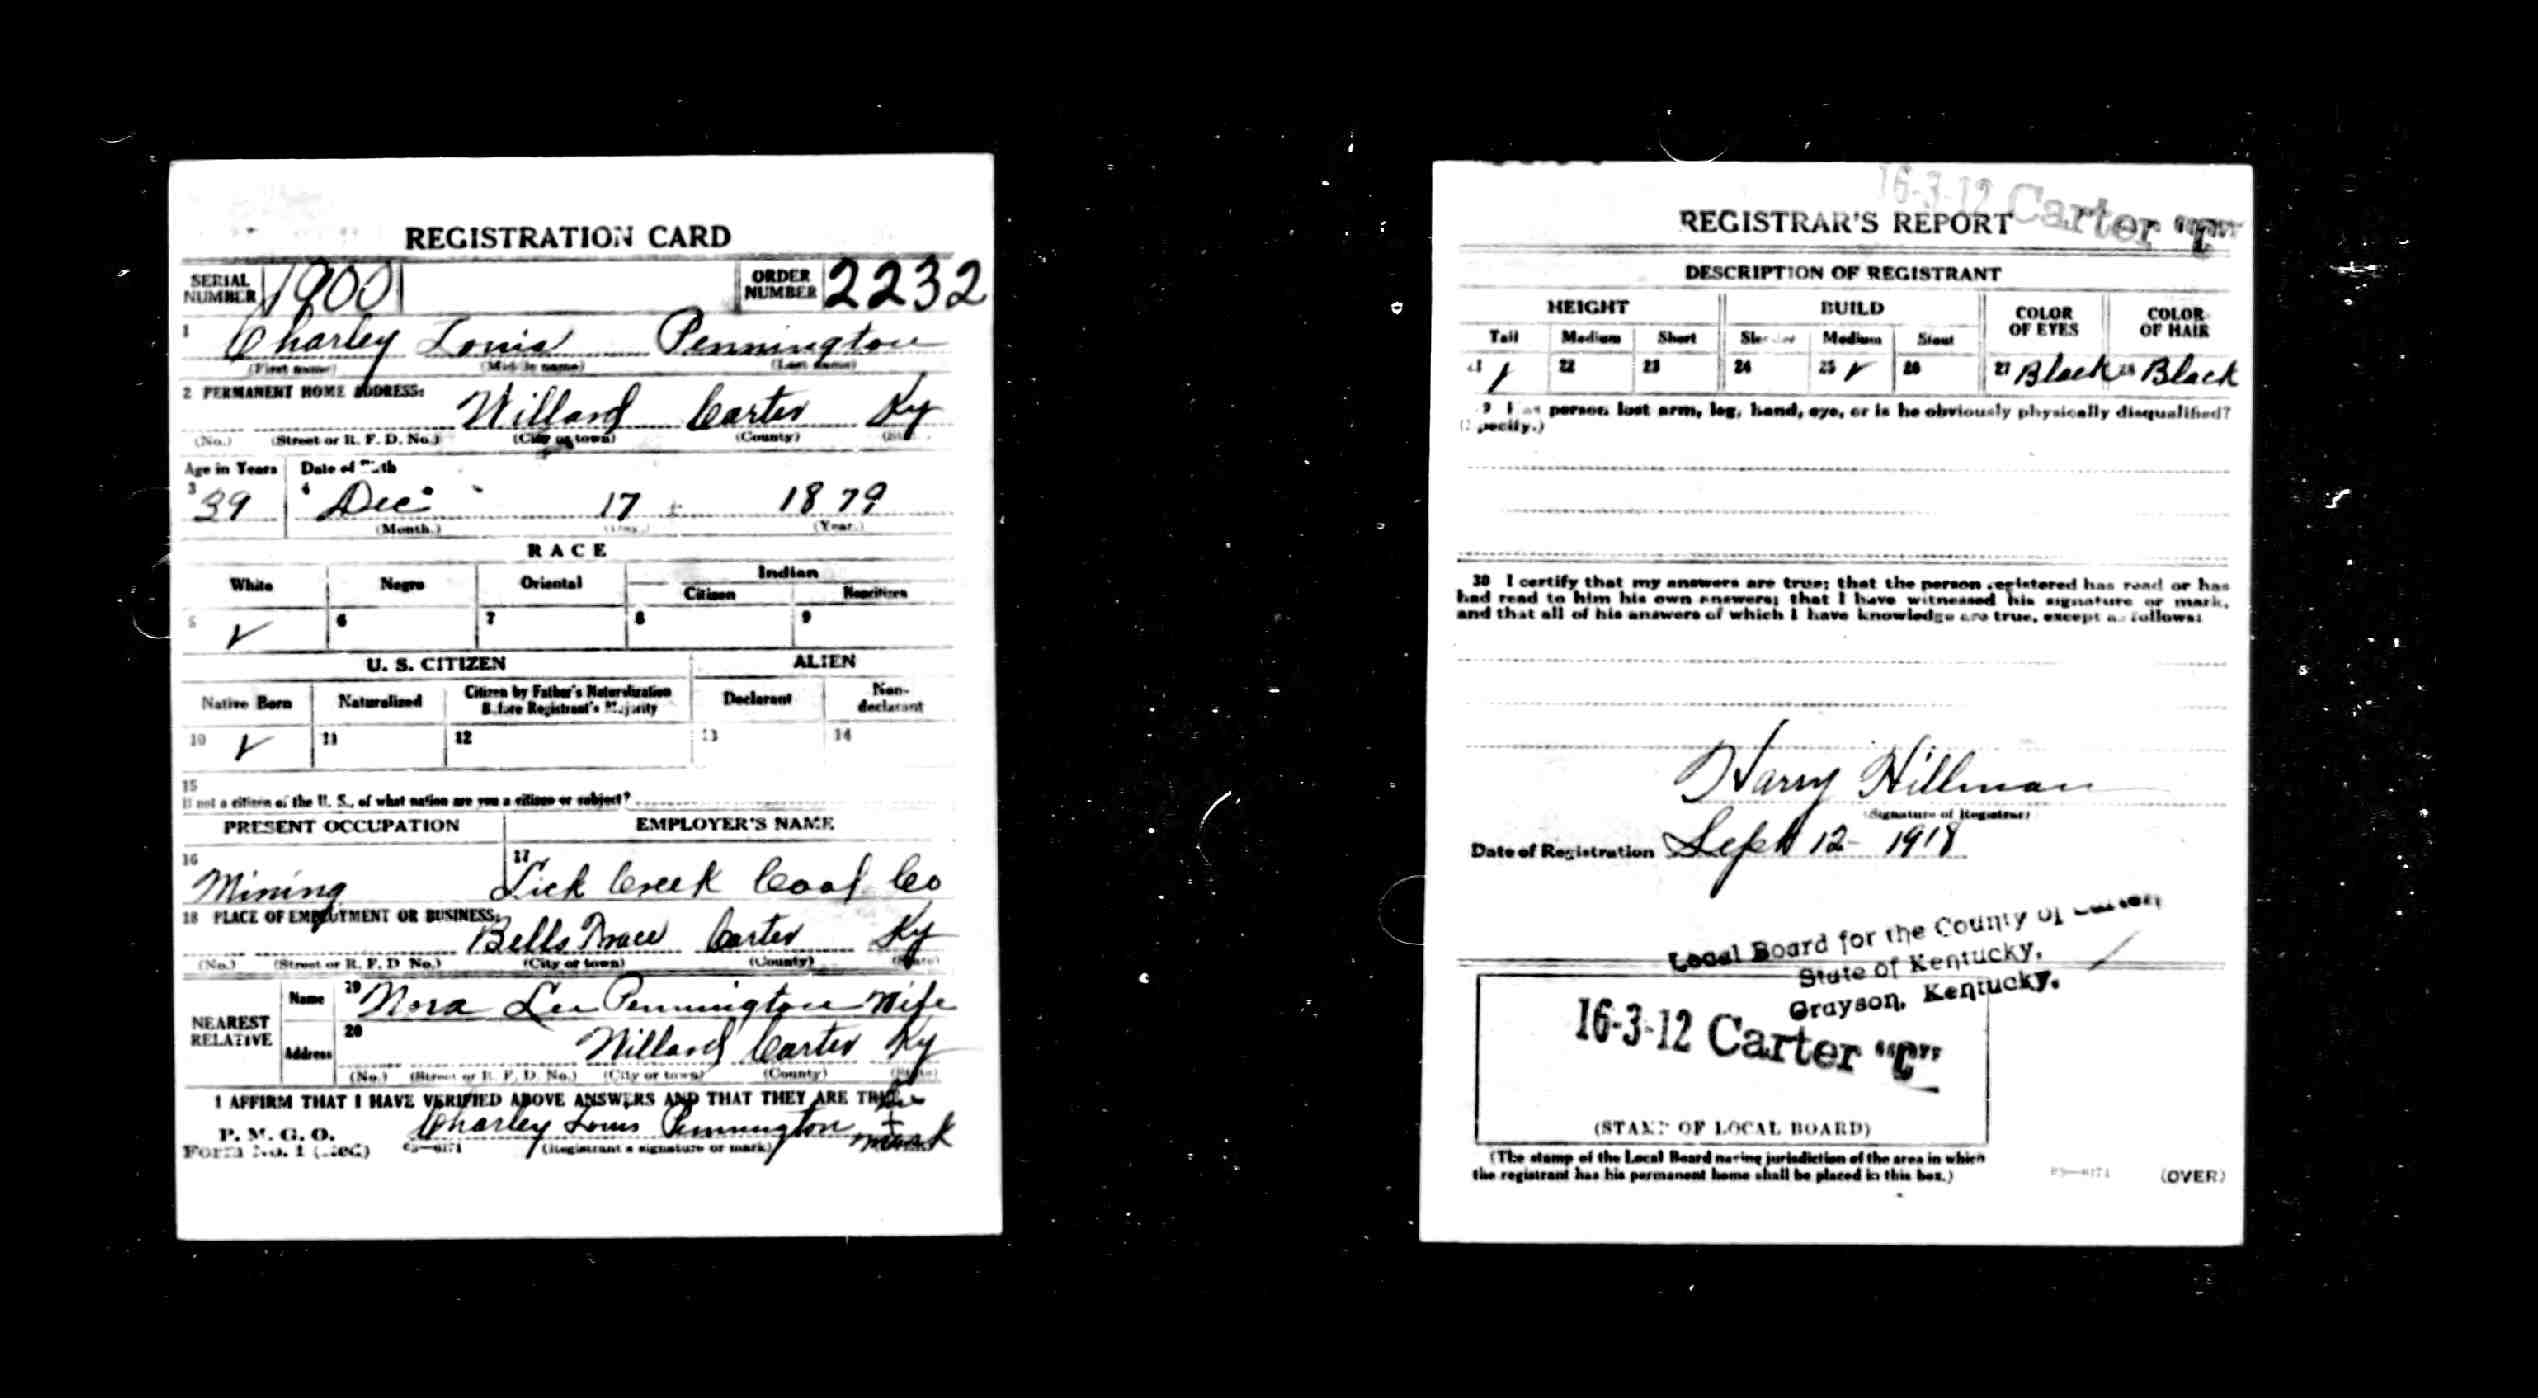 REGISTRATION CARD
SERIAL NUMBER 1900 ORDER NUMBER 2232
1 Charley Louis Pennington
(First name) (Middle name) (Last name)
2 PERMANENT HOME ADDRESS:
Willard Carter Ky
(No.) (Street or R. F. D. No.) (City or town) (County) (State)
Age in Years Date of Birth
3 39 4 Dec. 17 1879
(Month.) (Day.) (Year.)
RACE
White Negro Oriental Indian
Citizen Noncitizen
5 ✓ 6 7 8 9
U. S. CITIZEN ALIEN
Native Born Naturalized Citizen by Father's Naturalization Before Registrant's Majority Declarant Non-declarant
10 ✓ 11 12 13 14
15
If not a citizen of the U. S., of what nation are you a citizen or subject?
PRESENT OCCUPATION EMPLOYER'S NAME
16 Mining 17 Lick Creek Coal Co
18 PLACE OF EMPLOYMENT OR BUSINESS:
Bells Trace Carter Ky
(No.) (Street or R. F. D. No.) (City or town) (County) (State)
NEAREST RELATIVE
Name 19 Nora Lee Pennington Wife
Address 20 Willard Carter Ky
(No.) (Street or R. F. D. No.) (City or town) (County) (State)
I AFFIRM THAT I HAVE VERIFIED ABOVE ANSWERS AND THAT THEY ARE TRUE
P. M. G. O.
Form No. 1 (Red)
Charley Louis Pennington mark
(Registrant's signature or mark)
16-3-12 Carter "C"
REGISTRAR'S REPORT
DESCRIPTION OF REGISTRANT
HEIGHT BUILD COLOR OF EYES COLOR OF HAIR
Tall Medium Short Slender Medium Stout
21 ✓ 22 23 24 25 ✓ 26 27 Black 28 Black
29 Has person lost arm, leg, hand, eye, or is he obviously physically disqualified?
(Specify.)
30 I certify that my answers are true; that the person registered has read or has
had read to him his own answers; that I have witnessed his signature or mark,
and that all of his answers of which I have knowledge are true, except as follows:
Harry Hillman
(Signature of Registrar)
Date of Registration Sept 12- 1918
Local Board for the County of Carter,
State of Kentucky,
Grayson, Kentucky.
16-3-12 Carter "C"
(STAMP OF LOCAL BOARD)
(The stamp of the Local Board having jurisdiction of the area in which
the registrant has his permanent home shall be placed in this box.)
(OVER)